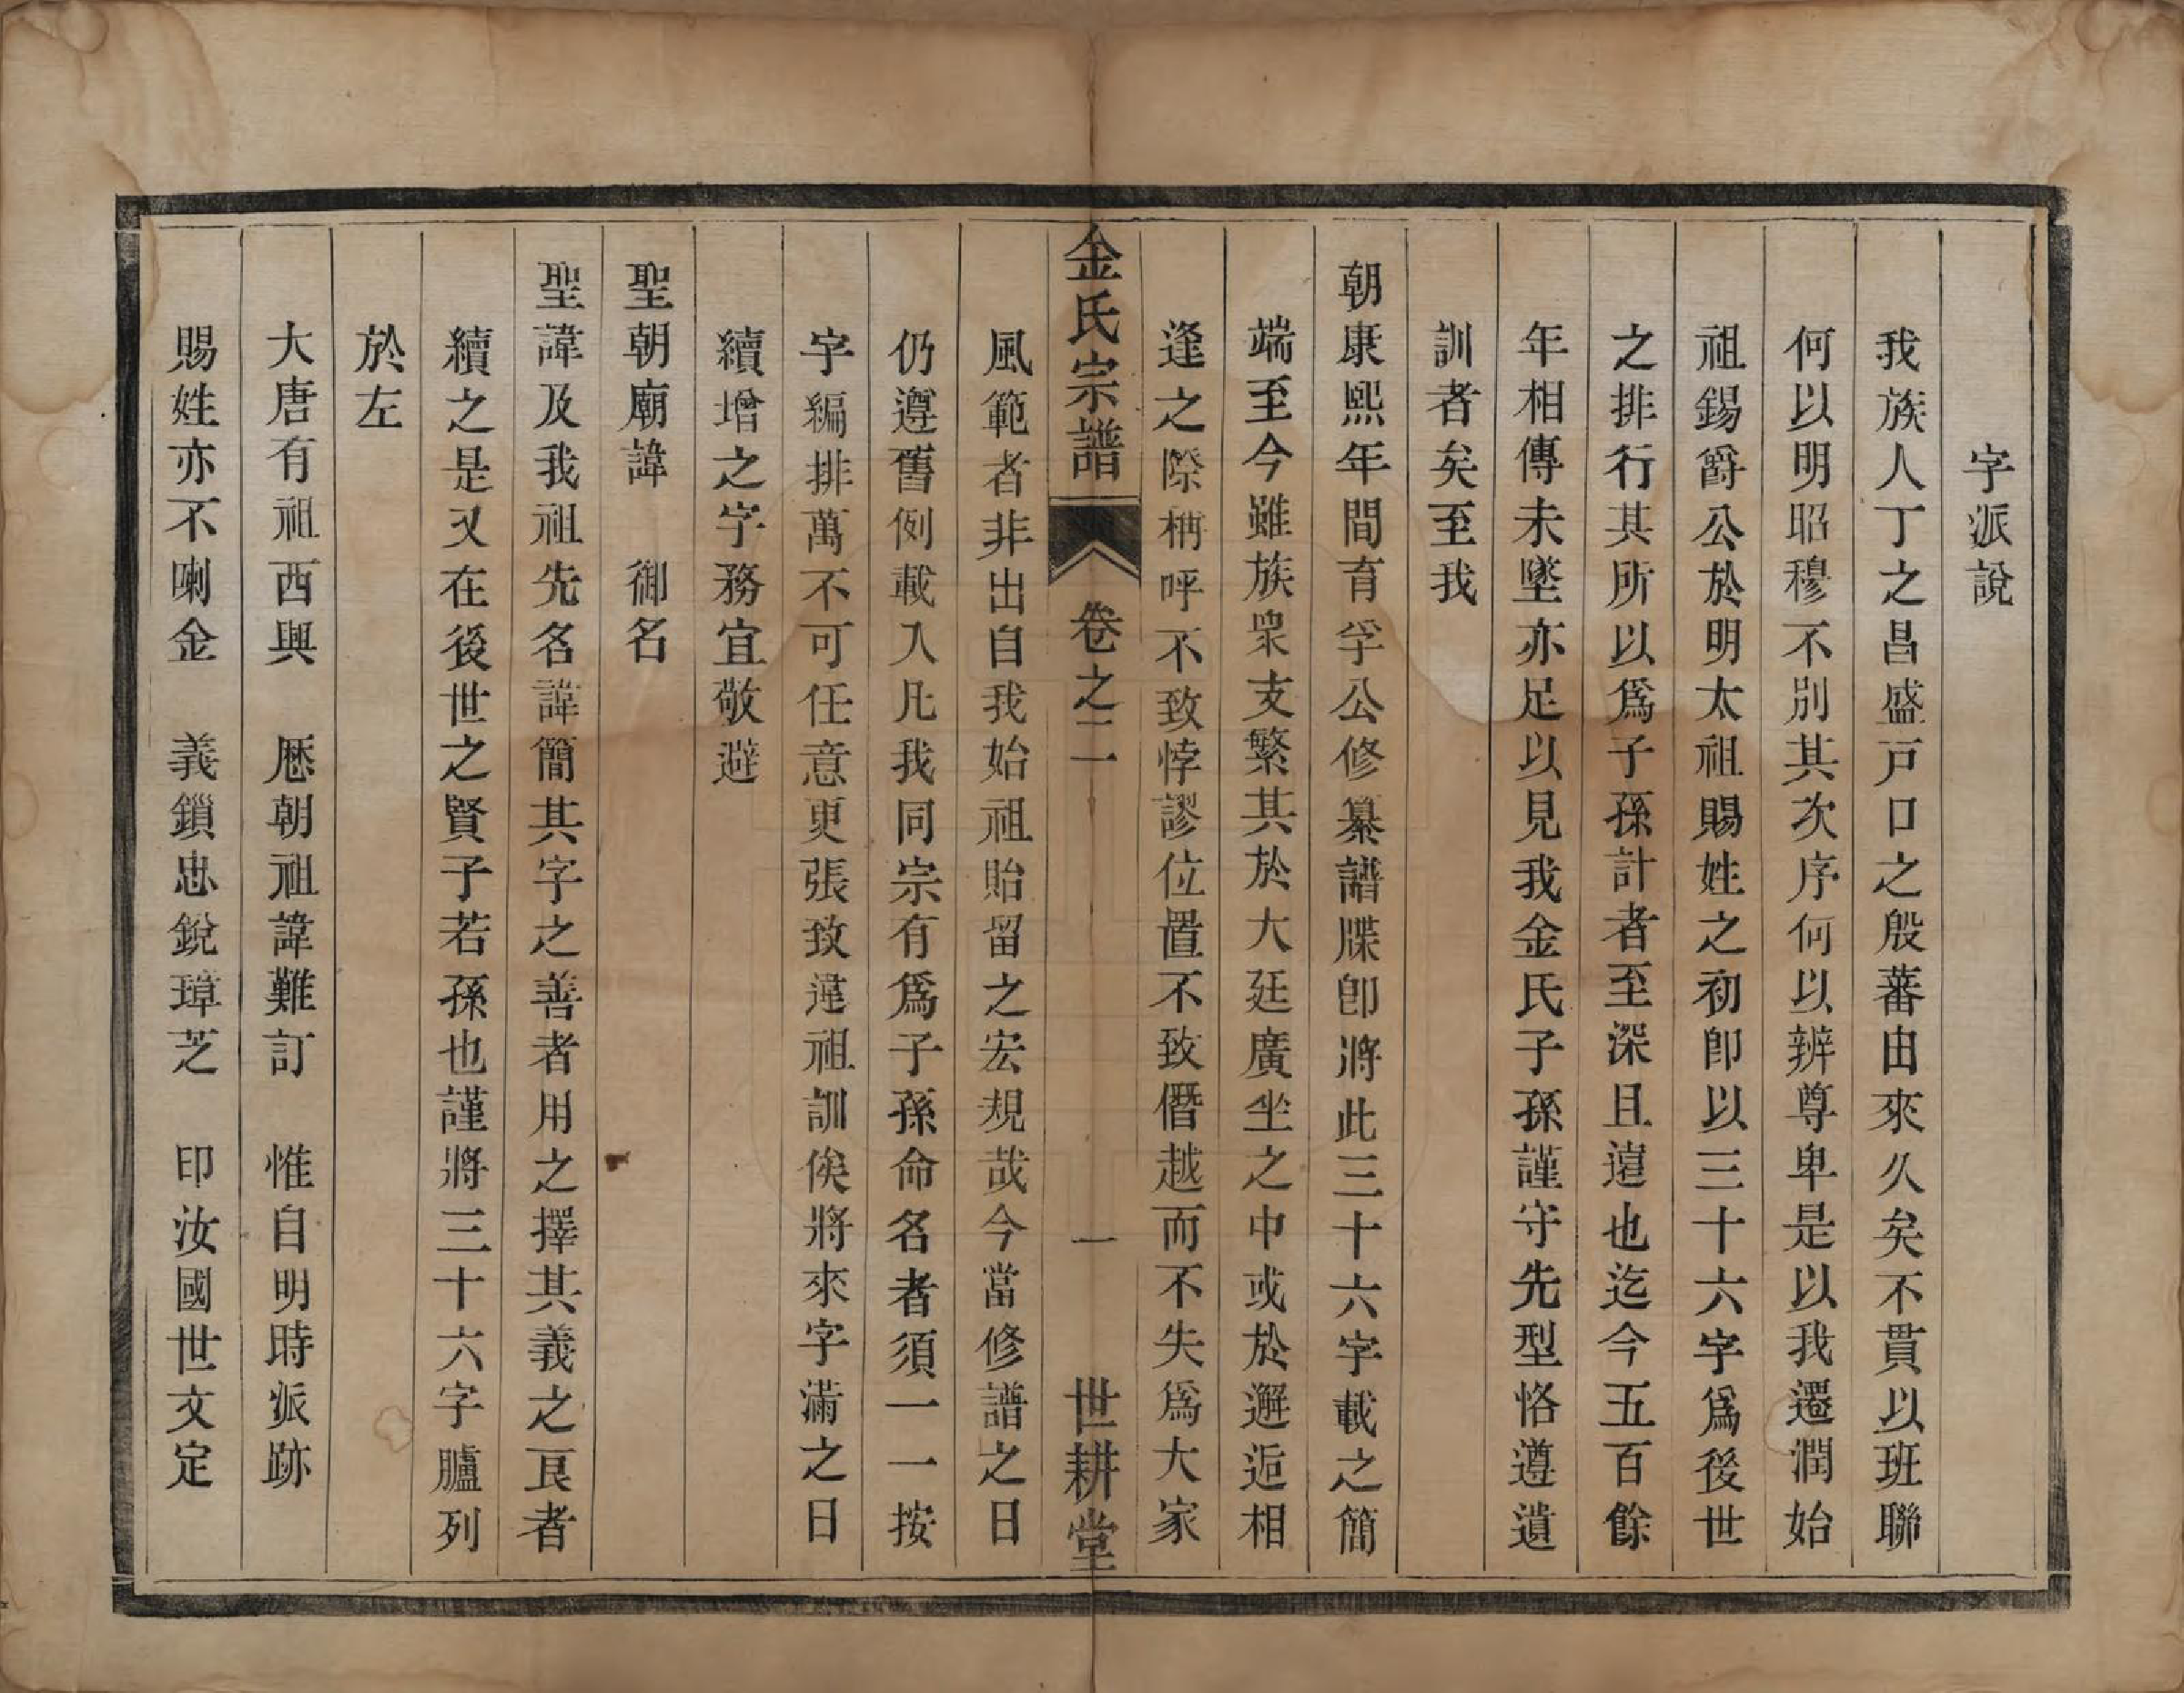 字派說
我族人丁之昌盛戸口之殷蕃由來久矣不貫以班聯
何以明昭穆不別其次序何以辨尊卑是以我遷潤始
祖錫爵公於明太祖賜姓之初卽以三十六字爲後世
之排行其所以爲子孫計者至深且遠也迄今五百餘
年相傳未墜亦足以見我金氏子孫謹守先型恪遵遺
訓者矣至我
朝康熙年間育孚公修纂譜牒卽將此三十六字載之簡
端至今雖族衆支繁其於大廷廣坐之中或於邂逅相
逢之際稱呼不致悖謬位置不致僭越而不失爲大家
金氏宗譜 卷之二 一 世耕堂
風範者非出自我始祖貽留之宏規哉今當修譜之日
仍遵舊例載入凡我同宗有爲子孫命名者須一一按
字編排萬不可任意更張致違祖訓俟將來字滿之日
續增之字務宜敬避
聖朝廟諱 御名
聖諱及我祖先名諱簡其字之善者用之擇其義之良者
續之是又在後世之賢子若孫也謹將三十六字臚列
於左
大唐有祖西興 歷朝祖諱難訂 惟自明時派跡
賜姓亦不喇金 義鎖忠銳璋芝 印汝國世文定